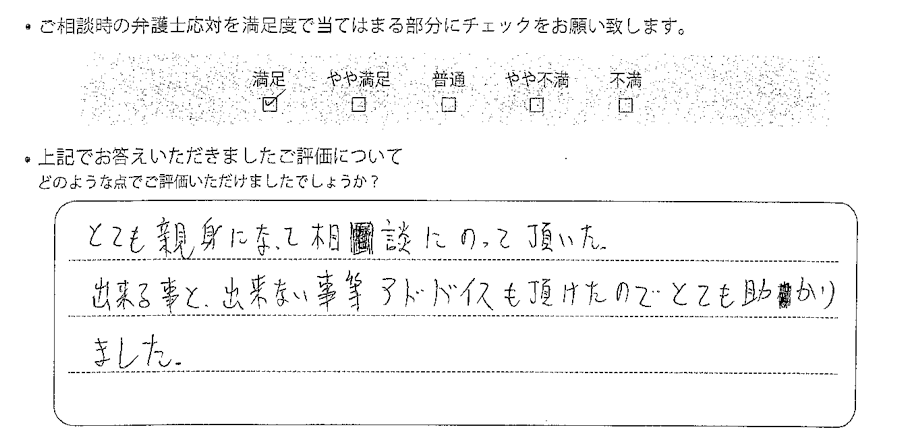 ・ご相談時の弁護士応対を満足度で当てはまる部分にチェックをお願い致します。
満足 やや満足 普通 やや不満 不満
☑ □ □ □ □
・上記でお答えいただきましたご評価について
どのような点でご評価いただけましたでしょうか？
とても親身になって相談にのって頂いた。
出来る事と、出来ない事等アドバイスも頂けたのでとても助かり
ました。